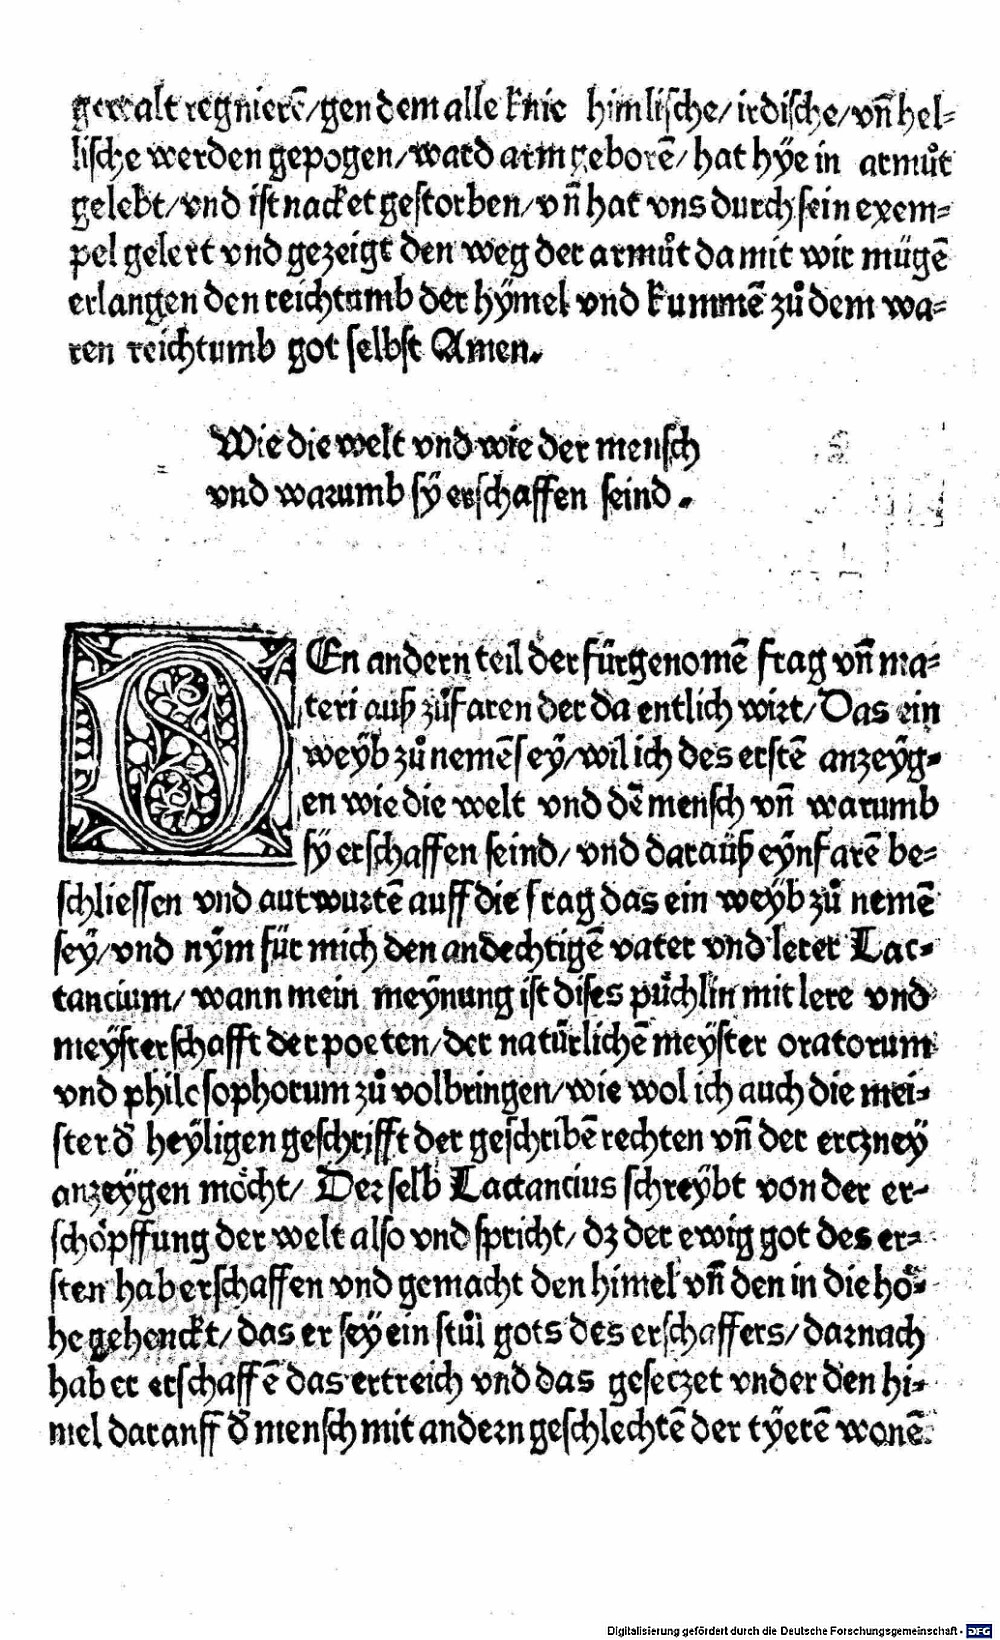 gewalt regnierē/gen dem alle knie himlische/irdische/vn̄ hel⸗
lische werden gepogen/ward arm geborē/hat hÿe in armůt
gelebt/vnd ist nacket gestorben/vn̄ hat vns durch sein exem⸗
pel gelert vnd gezeigt den weg der armůt damit wir mügē
erlangen den reichtumb der hÿmel vnd kummē zů dem wa⸗
ren reichtumb got selbst Amen.
Wie die welt vnd wie der mensch
vnd warumb sÿ erschaffen seind.
DEn andern teil der fürgenomē frag vn̄ ma⸗
teri auß zůfaren der da entlich wirt/Das ein
weÿb zů nemē sey/wil ich des erstē anzeÿg⸗
en wie die welt vnd dē mensch vn̄ warumb
sÿ erschaffen seind/vnd darauß eÿnfarē be⸗
schliessen vnd autwurtē auff die frag das ein weÿb zů nemē
seÿ/vnd nÿm für mich den andechtigē vater vnd lerer Lac⸗
tancium/wann mein meÿnung ist dises půchlin mit lere vnd
meÿsterschafft der poeten/der natürlichē meÿster oratorum
vnd philosophorum zů volbringen/wie wol ich auch die mei⸗
ster d̄ heÿligen geschrifft der geschribē rechten vn̄ der erczneÿ
anzeÿgen möcht/Der selb Lactancius schreÿbt von der er⸗
schöpffung der welt also vnd spricht/dz der ewig got des er⸗
sten hab erschaffen vnd gemacht den himel vn̄ den in die hö⸗
he gehenckt/das er seÿ ein stůl gots des erschaffers/darnach
hab er erschaffē das ertreich vnd das gesetzet vnder den hi⸗
mel daranff d̄ mensch mit andern geschlechtē der tÿerē wonē.
Digitalisierung gefördert durch die Deutsche Forschungsgemeinschaft - DFG